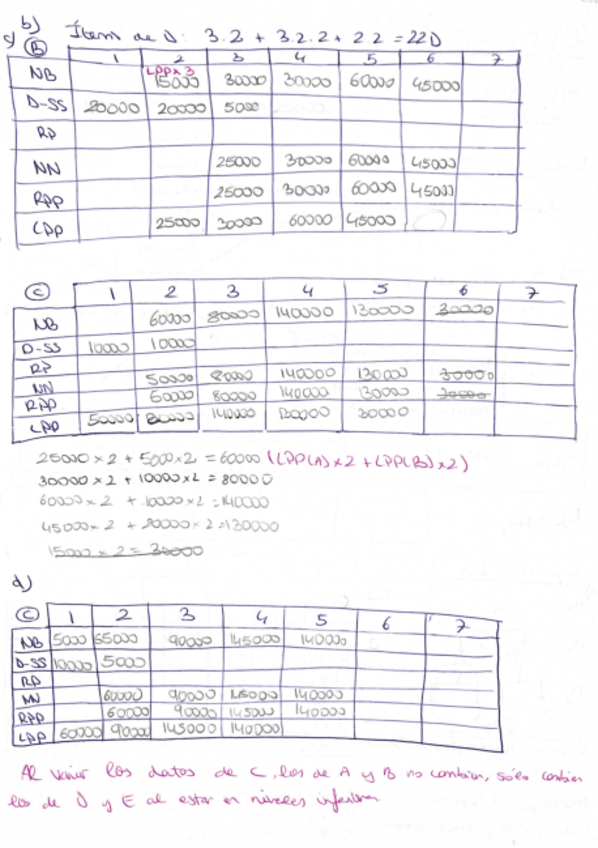 b) Ítem de D: 3.2 + 3.2.2 + 2.2 = 22D
c) B
1 2 3 4 5 6 7
LPP x 3
NB 15000 30000 30000 60000 45000
D-SS 20000 20000 5000
RP
NN 25000 30000 60000 45000
RPP 25000 30000 60000 45000
LPP 25000 30000 60000 45000
C 1 2 3 4 5 6 7
NB 60000 80000 140000 130000 30000
D-SS 10000 10000
RP
NN 50000 80000 140000 130000 30000
RPP 50000 80000 140000 130000 30000
LPP 50000 80000 140000 130000 30000
25000 x 2 + 5000 x 2 = 60000 (LPP(A) x 2 + LPP(B) x 2)
30000 x 2 + 10000 x 2 = 80000
60000 x 2 + 10000 x 2 = 140000
45000 x 2 + 20000 x 2 = 130000
15000 x 2 = 30000
d)
C 1 2 3 4 5 6 7
NB 5000 65000 90000 145000 140000
D-SS 10000 5000
RP
NN 60000 90000 145000 140000
RPP 60000 90000 145000 140000
LPP 60000 90000 145000 140000
Al variar los datos de C, los de A y B no cambian, sólo cambian
los de D y E al estar en niveles inferiores